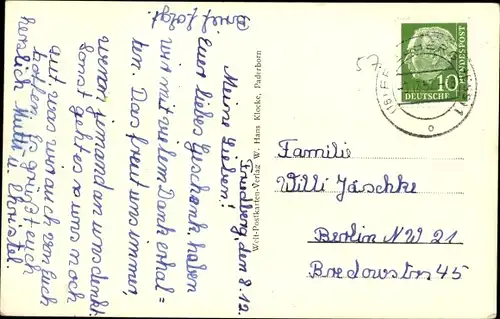 Friedberg, den 8.12.
Meine Lieben!
Euer liebes Geschenk haben
wir mit vielem Dank erhal=
ten. Das freut uns immer,
wenn jemand an uns denkt.
Sonst geht es uns noch
gut was wir auch von Euch
hoffen. Es grüßt euch
herzlich Mutti u. Christel.
Brief folgt
Welt-Postkarten-Verlag W. Hans Klocke, Paderborn
57
DEUTSCHE
BUNDESPOST
10
Familie
Willi Jäschke
Berlin NW 21
Bredowstr. 45